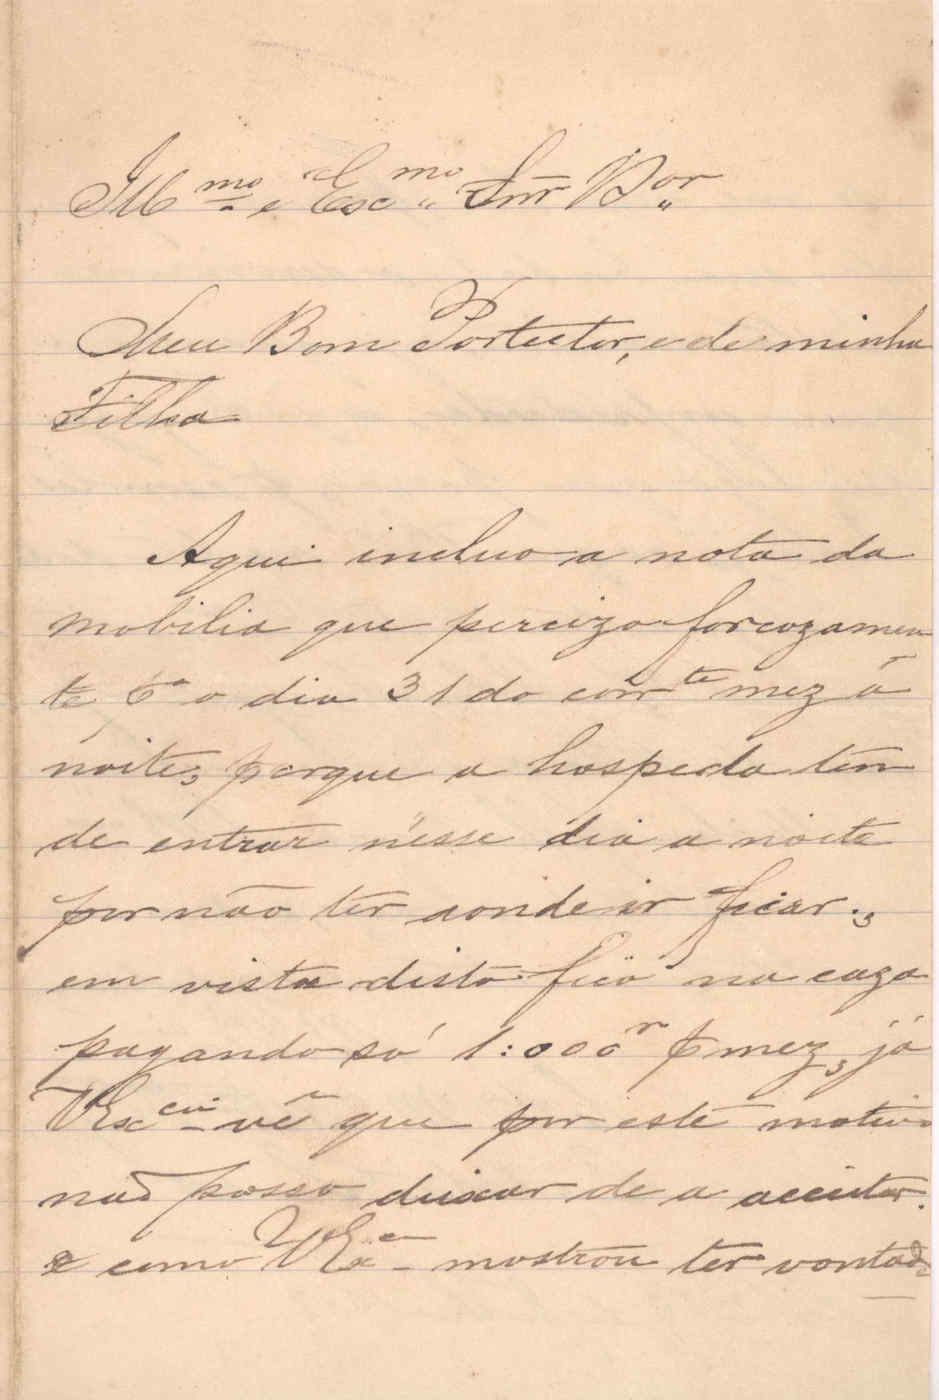 Illmo e Excmo Snr Dor
Meu Bom Portector, e de minha
Filha
Aqui incluo a nota da
mobilia que percizo forcozamen
te pa o dia 31 do corrte mez á
noite, porque a hospeda tem
de entrar n'esse dia a noite
por não ter aonde ir ficar.,
em vista disto fico na caza
pagando só 1:000r p mez, já
VExcia vê que por este motivo
não posso deixar de a aceitar.
e como VExa mostrou ter vontade